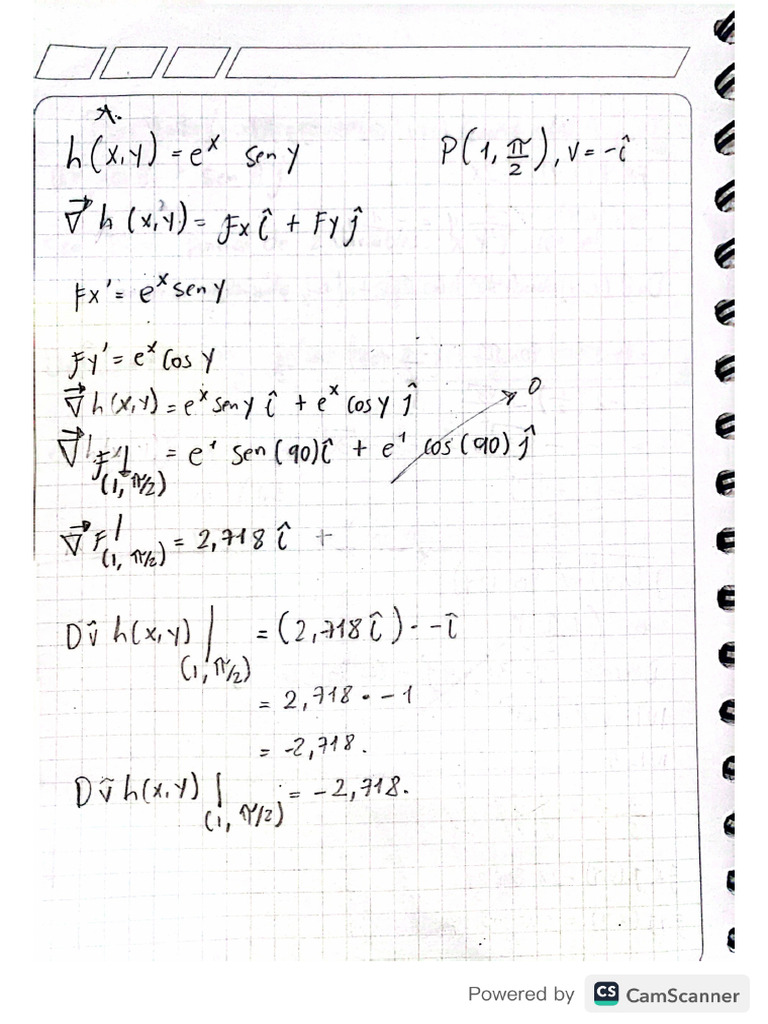 *.
h(x,y) = e^x sen y P(1, π/2), v = -î
∇⃗ h(x,y) = Fx î + Fy ĵ
Fx' = e^x sen y
Fy' = e^x cos y
∇⃗ h(x,y) = e^x sen y î + e^x cos y ĵ
0
∇⃗ F | (1, π/2) = e^1 sen(90) î + e^1 cos(90) ĵ
∇⃗ F | (1, π/2) = 2,718 î +
Dv̂ h(x,y) | (1, π/2) = (2,718 î) · -î
= 2,718 · -1
= -2,718.
Dv̂ h(x,y) | (1, π/2) = -2,718.
Powered by CS CamScanner